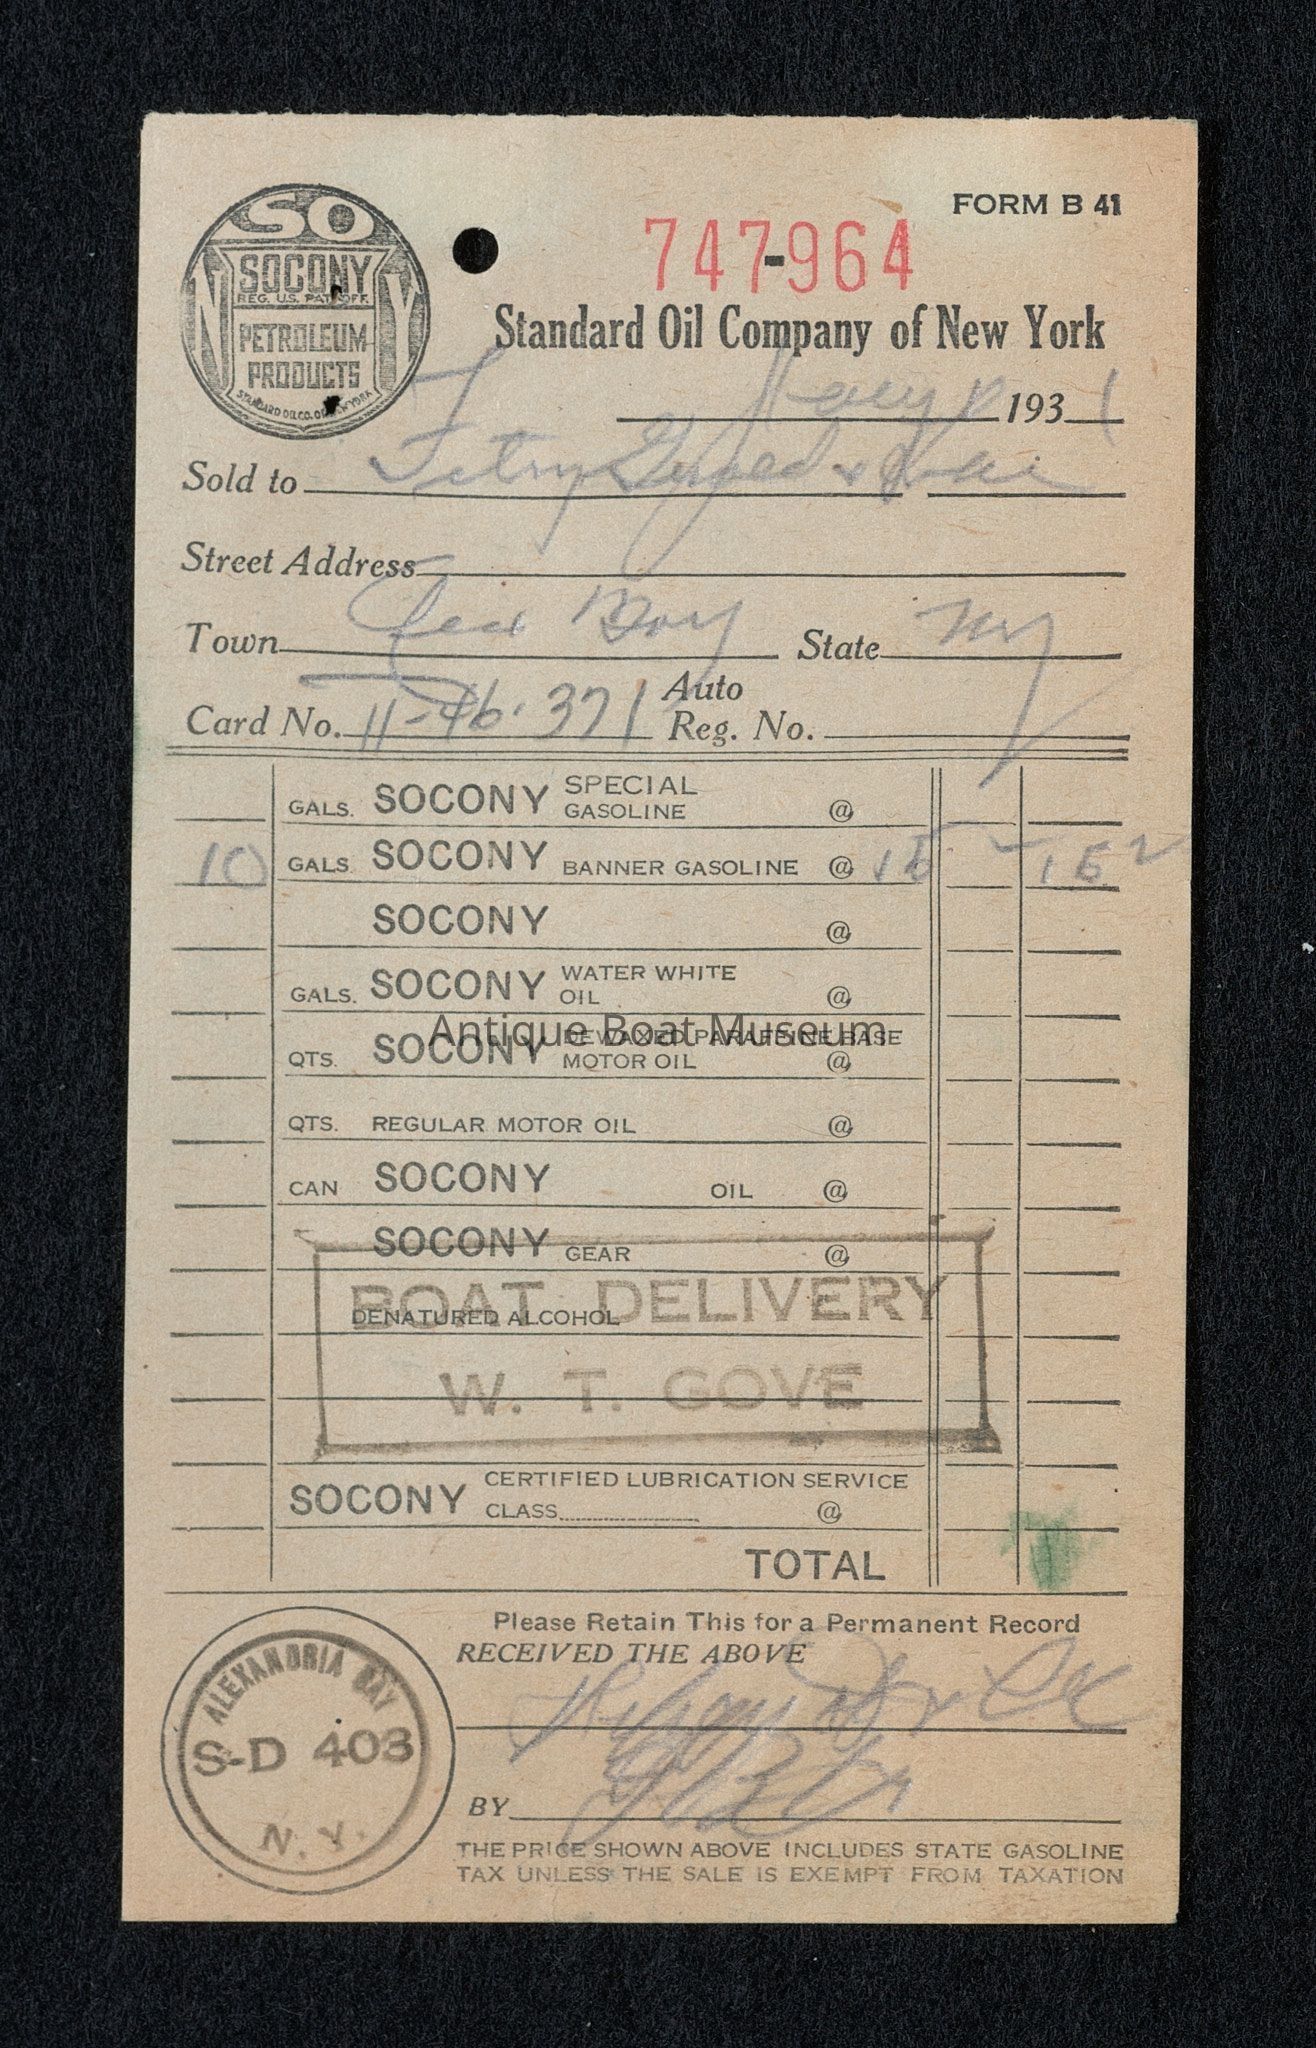 FORM B 41
SO
NY
SOCONY
REG. U.S. PAT. OFF.
PETROLEUM
PRODUCTS
STANDARD OIL CO. OF NEW YORK
747-964
Standard Oil Company of New York
193 1
Sold to
Street Address
Town Alex Bay State NY
Card No. 11-46-371 Auto Reg. No.
GALS. SOCONY SPECIAL GASOLINE @
10 GALS. SOCONY BANNER GASOLINE @ 15 2 152
SOCONY @
GALS. SOCONY WATER WHITE OIL @
QTS. SOCONY DEWAXED PARAFFINE BASE MOTOR OIL @
Antique Boat Museum
QTS. REGULAR MOTOR OIL @
CAN SOCONY OIL @
SOCONY GEAR @
DENATURED ALCOHOL
BOAT DELIVERY
W. T. GOVE
SOCONY CERTIFIED LUBRICATION SERVICE
CLASS @
TOTAL
Please Retain This for a Permanent Record
RECEIVED THE ABOVE
BY
ALEXANDRIA BAY
S-D 403
N. Y.
THE PRICE SHOWN ABOVE INCLUDES STATE GASOLINE
TAX UNLESS THE SALE IS EXEMPT FROM TAXATION